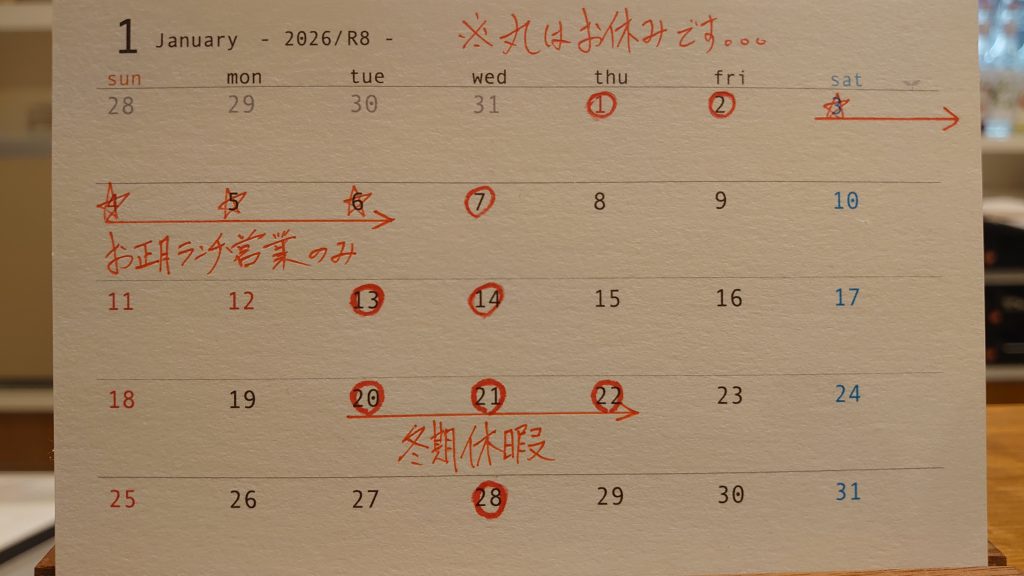 1 January - 2026/R8 - ※丸はお休みです。。。
sun mon tue wed thu fri sat
28 29 30 31 1 2 3
4 5 6 7 8 9 10
お正月ランチ営業のみ
11 12 13 14 15 16 17
18 19 20 21 22 23 24
冬期休暇
25 26 27 28 29 30 31